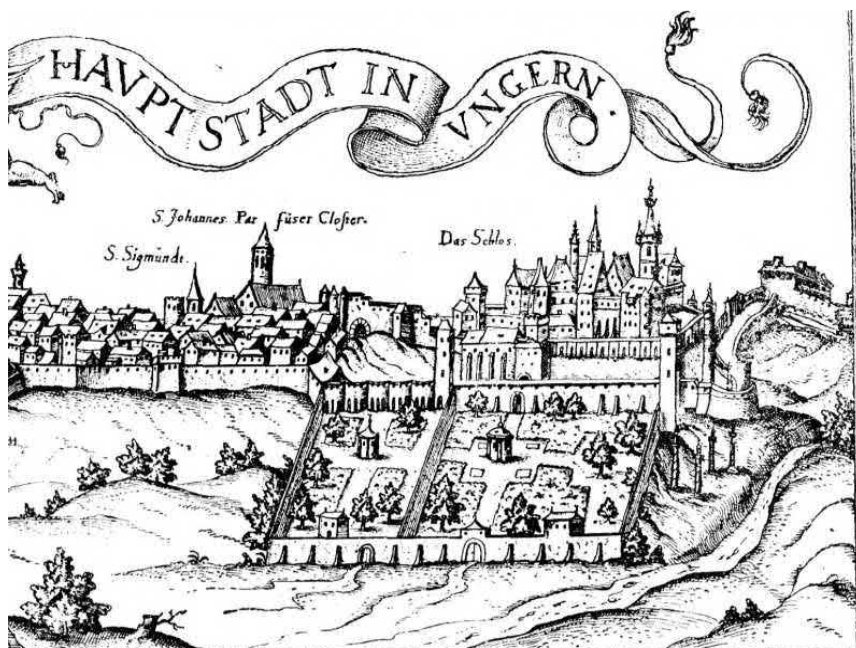 HAVPT STADT IN VNGERN.
S. Johannes Par füser Closter.
S. Sigmündt.
Das Schlos.